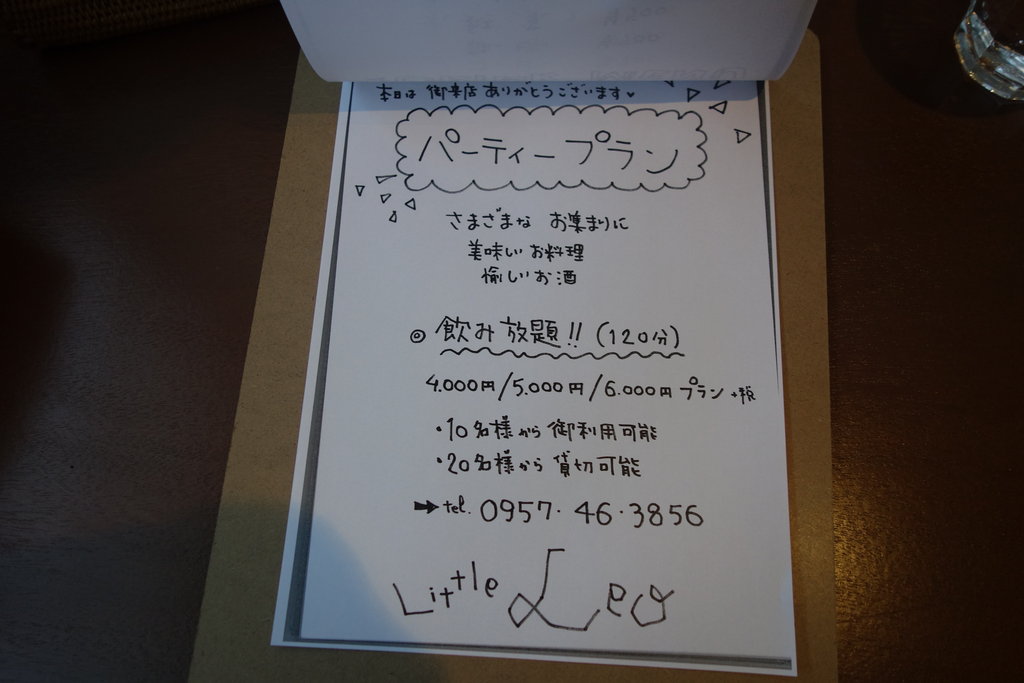 本日は 御来店ありがとうございます♥
パーティープラン
さまざまな お集まりに
美味しい お料理
愉しい お酒
◎ 飲み放題!! (120分)
4.000円/5.000円/6.000円プラン +税
・10名様から 御利用可能
・20名様から 貸切可能
➡ tel. 0957・46・3856
Little Leo